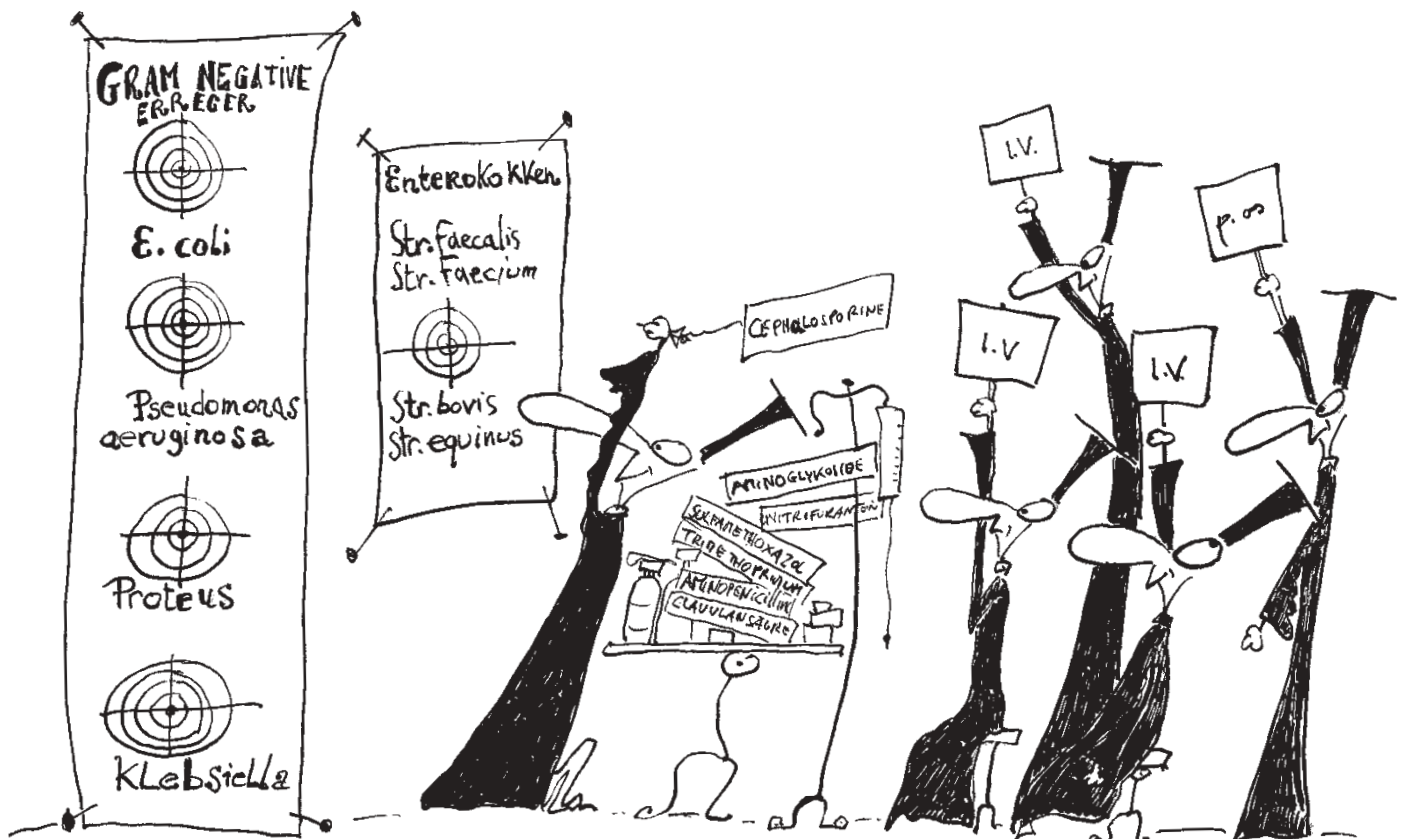 GRAM NEGATIVE
ERREGER
E. coli
Pseudomonas
aeruginosa
Proteus
Klebsiella
Enterokokken
Str. faecalis
Str. Faecium
Str. bovis
Str. equinus
CEPHALOSPORINE
AMINOGLYKOSIDE
NITROFURANTOIN
SULFAMETHOXAZOL
TRIMETHOPRIM
AMINOPENICILLIN
CLAVULANSÄURE
I.V.
p. os
I.V
I.V.